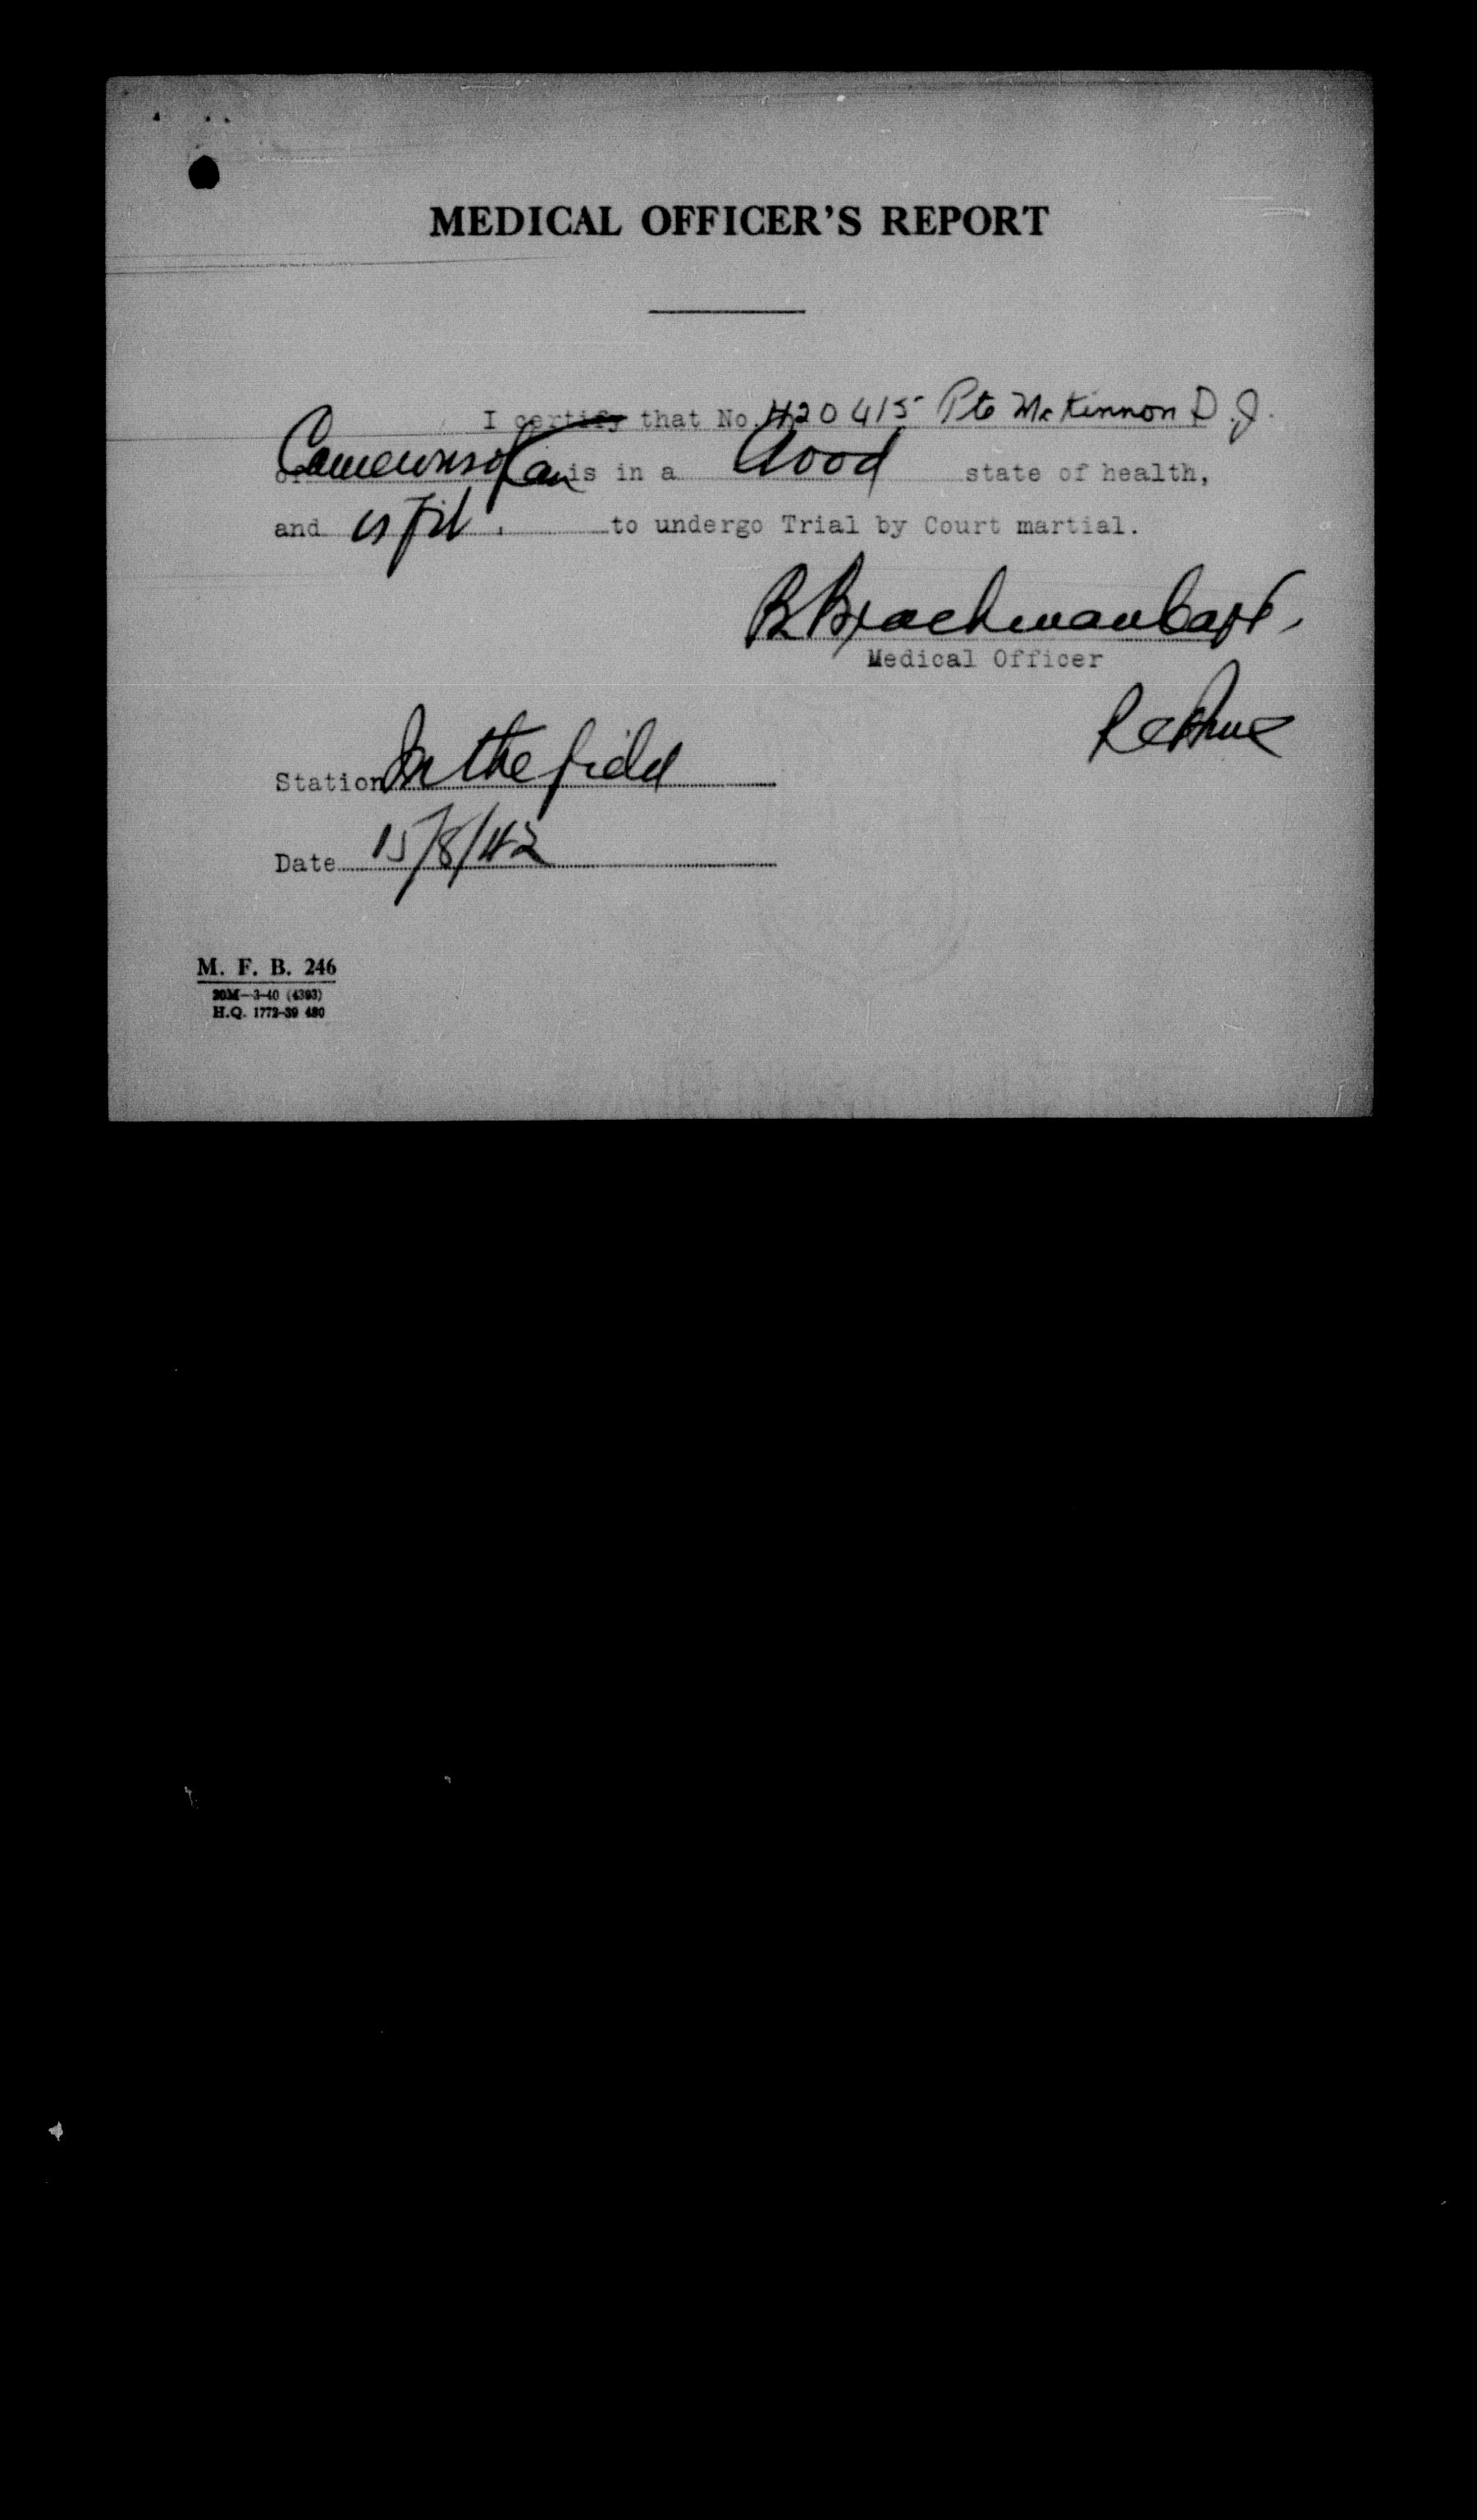 MEDICAL OFFICER'S REPORT
I certify that No. H20415 Pte McKinnon D.J.
of Camerons of Can is in a Good state of health,
and is fit to undergo Trial by Court martial.
B Brachman Capt.
Medical Officer
Station In the field
Date 15/8/42
M. F. B. 246
20M—3-40 (4393)
H.Q. 1772-39 480